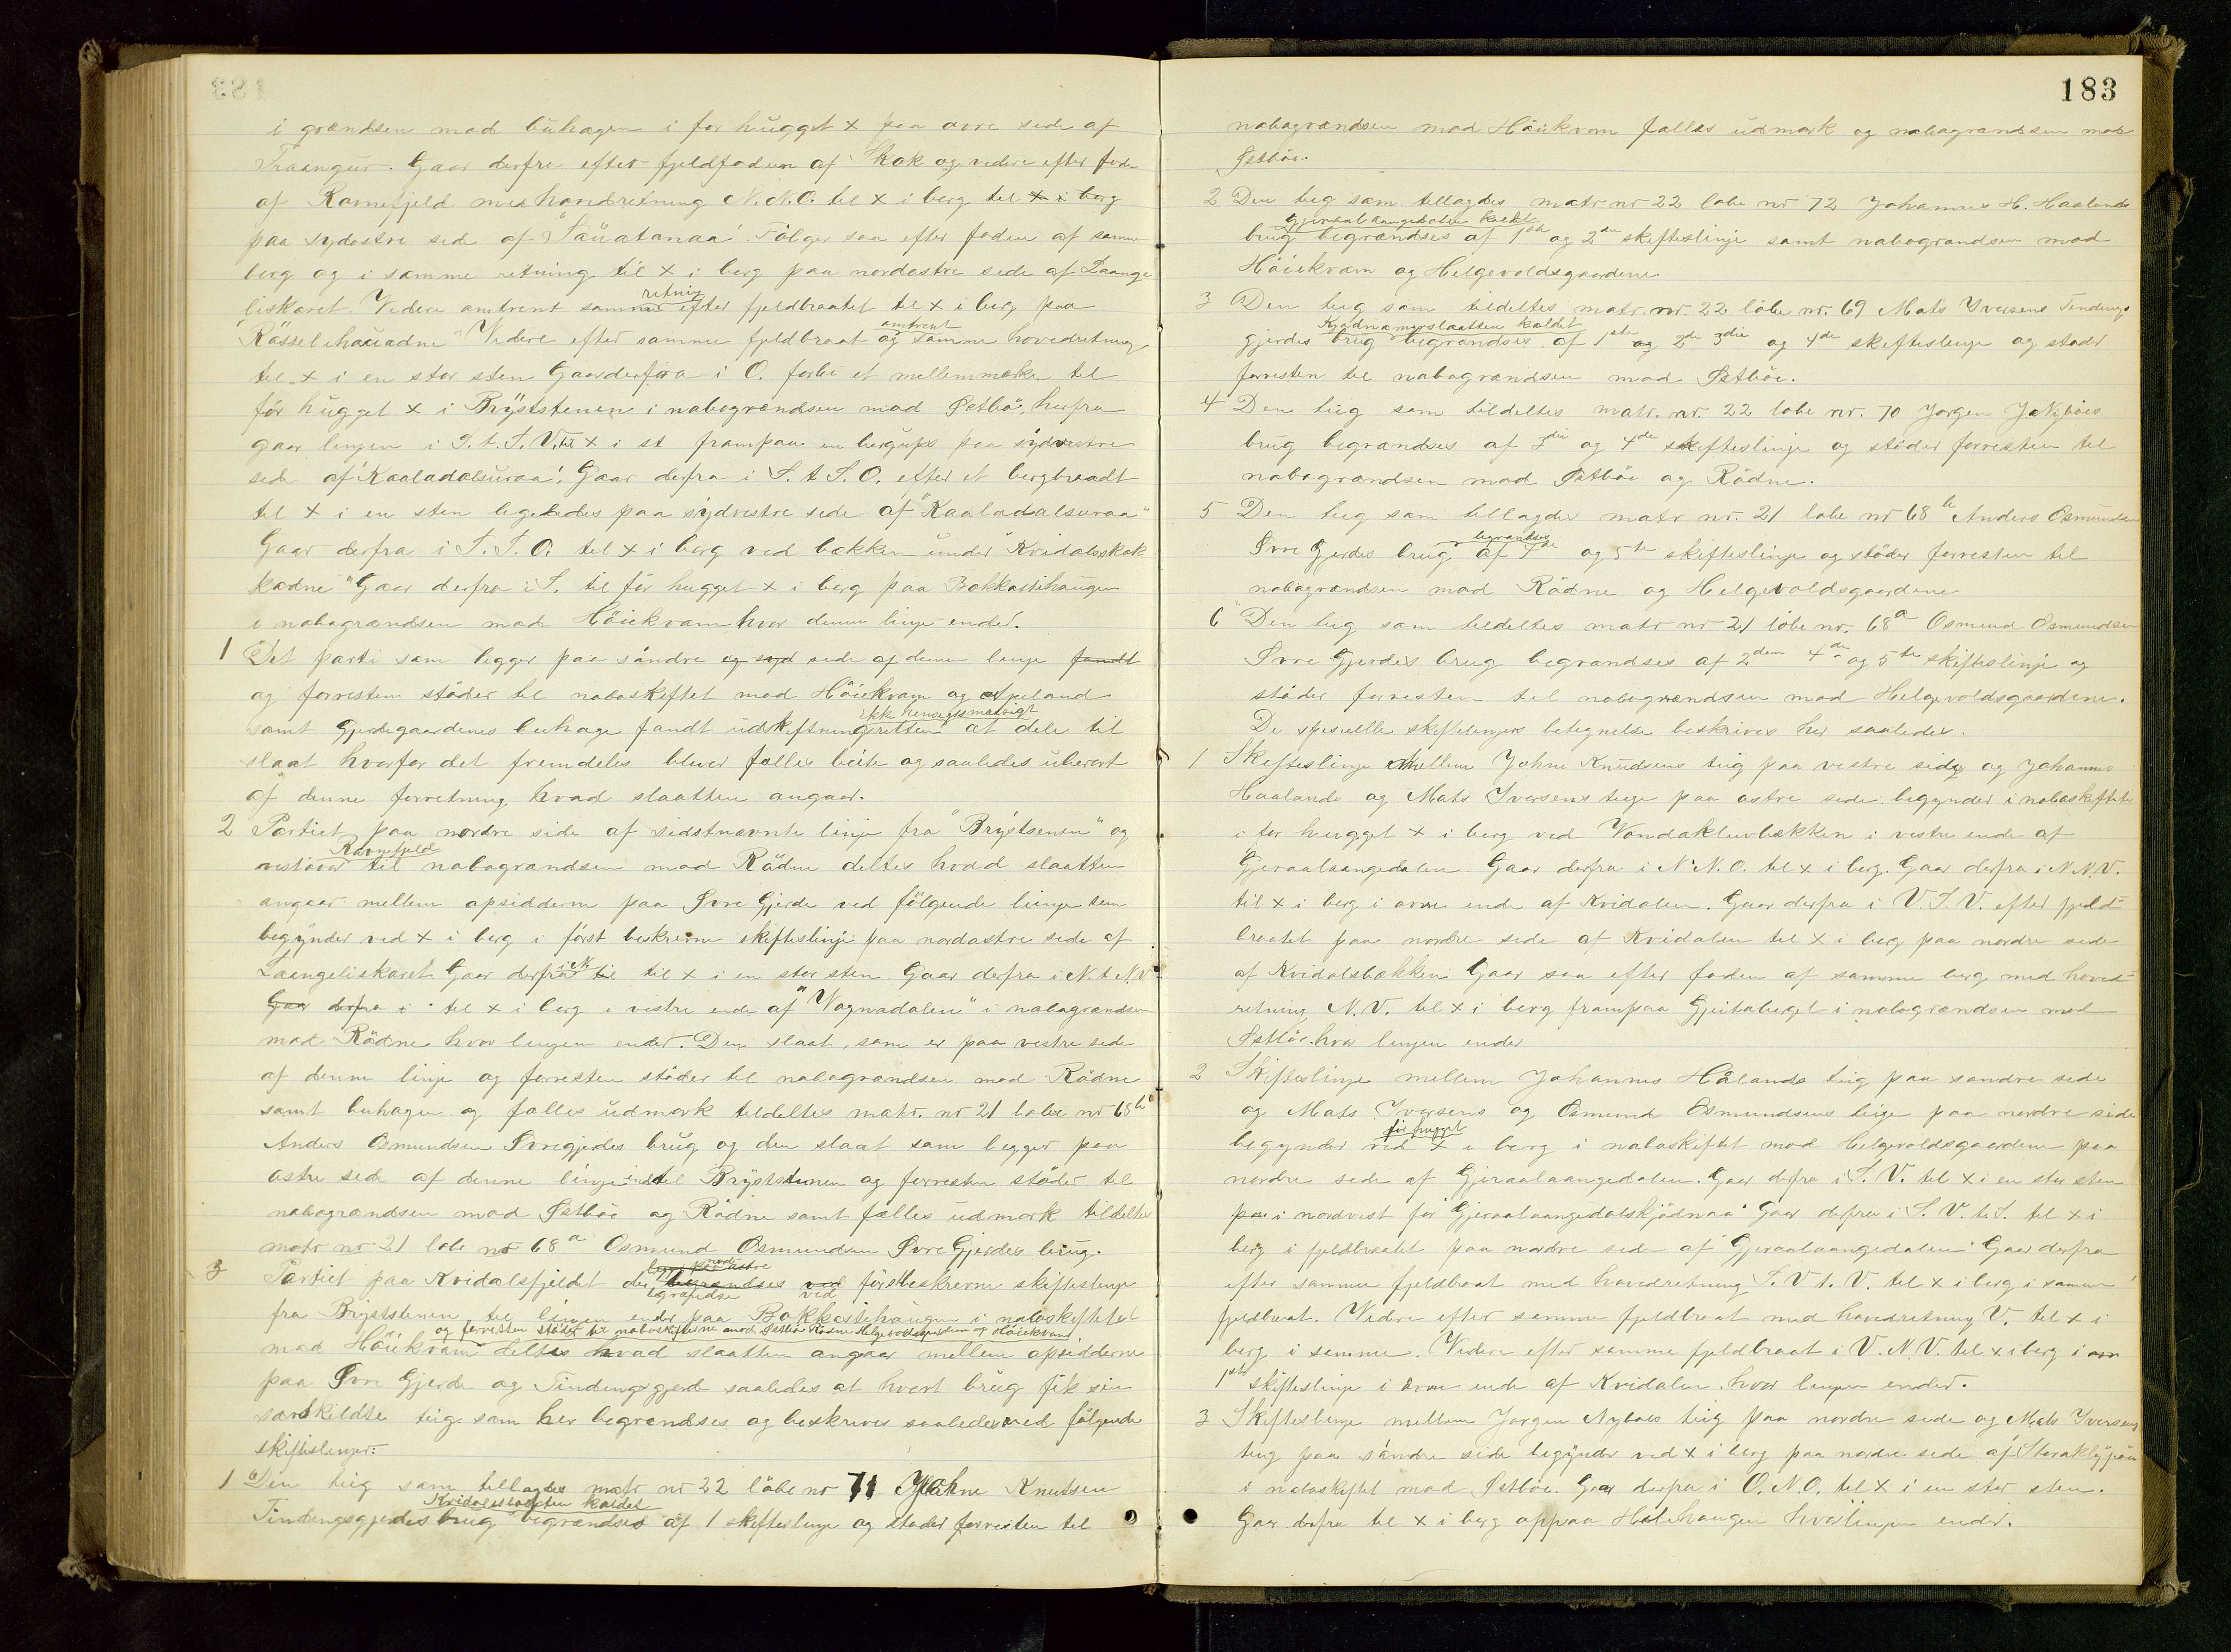 i grændsen mod buhagen i før hugget x paa øvre side af
Traangur. Gaar derfra efter fjeldfoden af Skok og videre efter fode
af Ravnefjeld med handretning N.N.O. til x i berg til x i berg
paa sydøstre side af "Sauatanaa". Følger saa efter foden af samme
berg og i samme retning til x i berg paa nordøstre side af Laange
liskaret. Videre omtrent samme retning efter fjeldbraatet til x i berg paa
"Rösselehauadne" Videre efter samme fjeldbraat og omtrent samme hovedretning
til x i en stor sten Gaar derfra i O. forbi et mellemmerke til
för hugget x i Bryststenen i nabogrændsen mod Østbö, herfra
gaar linjen i S.t.S.V. til x i st frampaa en bergups paa sydvestre
side af "Kaaladalsuraa". Gaar derfra i S.t.S.O. efter et bergbraadt
til x i en sten ligeledes paa sydvestre side af "Kaaladalsuraa"
Gaar derfra i S.S.O. til x i berg ved bækken under "Kvidalsskok
kadne" Gaar derfra i S. til för hugget x i berg paa Bakkastihaugen
i nabogrændsen mod Höiekvam hvor denne linje ender.
1 Det parti som ligger paa söndre og syd side af denne linje fandt
og forresten stöder til naboskiftet mod Höiekvam og Apeland
samt Gjerdegaardenes buhage fandt udskiftningsretten ikke hensigtsmæssigt at dele til
slaat hvorfor det fremdeles bliver fælles beite og saaledes uberørt
af denne forretning, hvad slaatten angaar.
2 Partiet paa nordre side af sidstnævnte linje fra "Brystsenen" og
vestover Ravnefjeld til nabogrændsen mod Rödne deltes hvad slaatten
angaar mellem opsidderne paa Øvre Gjerde ved fölgende linje som
begynder ved x i berg i först beskrevne skifteslinje paa nordøstre side af
Laangeliskaret. Gaar derfra i N. til x i en stor sten Gaar derfra i N.t.N.V.
Gaar derfra i til x i berg i vestre ende af "Vagnadalen" i nabogrændsen
mod Rödne hvor linjen ender. Den slaat, som er paa vestre side
af denne linje og forresten stöder til nabogrændsen mod Rödne
samt buhagen og fælles udmark tildeltes matr. nr 21 løbe nr 68 b
Anders Osmundsen Øvregjerdes brug og den slaat som ligger paa
østre side af denne linje indtil Bryststenen og forresten stöder til
nabogrændsen mod Østböe og Rödne samt fælles udmark tildeltes
matr nr 21 løbe nr 68 a Osmund Osmundsen Øvre Gjerdes brug.
3 Partiet paa Kvidalsfjeldet der ligger paa nordøstre begrændses ved förstbeskrevne skifteslinje
fra Bryststenen til linjen ender paa Bakkastihaugen i naboskiftet
mod Höiekvam og forresten stöder til naboskifterne mod Østbö Rödne Helgevoldsgaardene og Höiekvam deltes hvad slaatten angaar mellem opsidderne
paa Øvre Gjerde og Tindengsgjerde saaledes at hvert brug fik sin
særskildte teig som her begrændses og beskrives saaledes ved fölgende
skifteslinjer:
1 Den teig som tillagdes matr nr 22 löbe nr 71 Johne Knutsen
Tindengsgjerdes brug Kvidalsslaatten kaldet begrændses af 1 skifteslinje og støder forresten til
183
nabogrændsen mod Höiekvam fælles udmark og nabogrændsen mod
Østböe.
2 Den teig som tillagdes matr nr 22 løbe nr 72 Johannes H. Haalands
brug Gjeraalaangedalen kaldt begrændses af 1ste og 2den skifteslinje samt nabogrændsen mod
Höiekvam og Helgevoldsgaardene.
3 Den teig som tildeltes matr. nr. 22 löbe nr. 69 Mats Iversens Tendengs
gjerdes brug Kjödnamyrslaatten kaldet begrændses af 1ste og 2de 3die og 4de skifteslinje og støder
forresten til nabogrændsen mod Østböe.
4 Den teig som tildeltes matr. nr. 22 løbe nr. 70 Jørgen J. Nyböes
brug begrændses af 3die og 4de skifteslinje og stöder forresten til
nabogrændsen mod Østböe og Rödne.
5 Den teig som tillagdes matr nr. 21 løbe nr 68 b Anders Osmundsen
Øvre Gjerdes brug begrændses af 4de og 5te skifteslinje og stöder forresten til
nabogrændsen mod Rödne og Helgevoldsgaardene
6 Den teig som tildeltes matr nr 21 löbe nr. 68 a Osmund Osmundsen
Øvre Gjerdes brug begrændses af 2den 4de og 5te skifteslinje og
stöder forresten til nabogrændsen mod Helgevoldsgaardene.
De specielle skifteslinjers betegnelse beskrives her saaledes.
1 Skifteslinje mellem Johne Knudsens teig paa vestre side og Johannes
Haalands og Mats Iversens teige paa østre side begynder i naboskiftet
i før hugget x i berg ved Vondakluvbækken i vestre ende af
Gjeraalaangedalen. Gaar derfra i N.N.O. til x i berg. Gaar derfra i N.N.V.
til x i berg i øvre ende af Kvidalen. Gaar derfra i V.S.V. efter fjeld-
braatet paa nordre side af Kvidalen til x i berg paa nordre side
af Kvidalsbækken Gaar saa efter foden af samme berg med hoved-
retning N.V. til x i berg frampaa Gjeitaberget i nabogrændsen mod
Østböe hvor linjen ender
2 Skifteslinje mellem Johannes Hålands teig paa søndre side
og Mats Iversens og Osmund Osmundsens teige paa nordre side
begynder ved för hugget x i berg i naboskiftet mod Helgevoldsgaardene paa
nordre side af Gjeraalaangedalen. Gaar derfra i S.V. til x i en stor sten
paa i nordvest for "Gjeraalaangedalskjödnaa" Gaar derfra i S.V.t.S. til x i
berg i fjeldbraatet paa nordre side af "Gjeraalaangedalen" Gaar derfra
efter samme fjeldbraat med hovedretning S.V.t.V. til x i berg i samme
fjeldbraat. Videre efter samme fjeldbraat med hovedretning V. til x i
berg i samme. Videre efter samme fjeldbraat i V.N.V. til x i berg i
1ste skifteslinje i øvre ende af Kvidalen hvor linjen ender.
3 Skifteslinje mellem Jørgen Nyböes teig paa nordre side og Mats Iversens
teig paa söndre side begynder ved x i berg paa nordre side af Storaklypen
i naboskiftet mod Østböe. Gaar derfra i O.N.O. til x i en stor sten.
Gaar derfra til x i berg oppaa Hålehaugen hvor linjen ender.